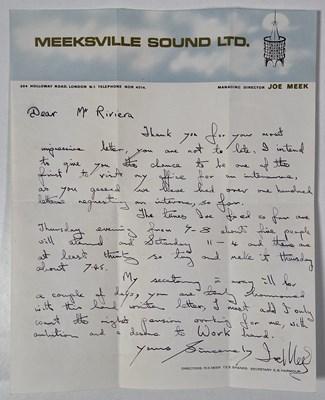 MEEKSVILLE SOUND LTD.
304 HOLLOWAY ROAD, LONDON N.7. TELEPHONE NOR 4074.
MANAGING DIRECTOR JOE MEEK
Dear Mr Riviera
Thank you for your most
impressive letter, you are not to late. I intend
to give you the chance to be one of the
first to visit my office for an interview,
as you guessed we have had over one hundred
letters requesting an interview, so far.
The times I've fixed so far are
Thursday evening from 7-8 about five people
will attend and Saturday 11-4 and there are
at least thirty so try and make it Thursday
about 7.45.
My secretary is away ill for
a couple of days, you are being honoured
with this hand written letter, I must add I only
want the right person working for me, with
ambition and a desire to Work hard.
yours Sincerely Joe Meek
DIRECTORS: R.G. MEEK SECRETARY